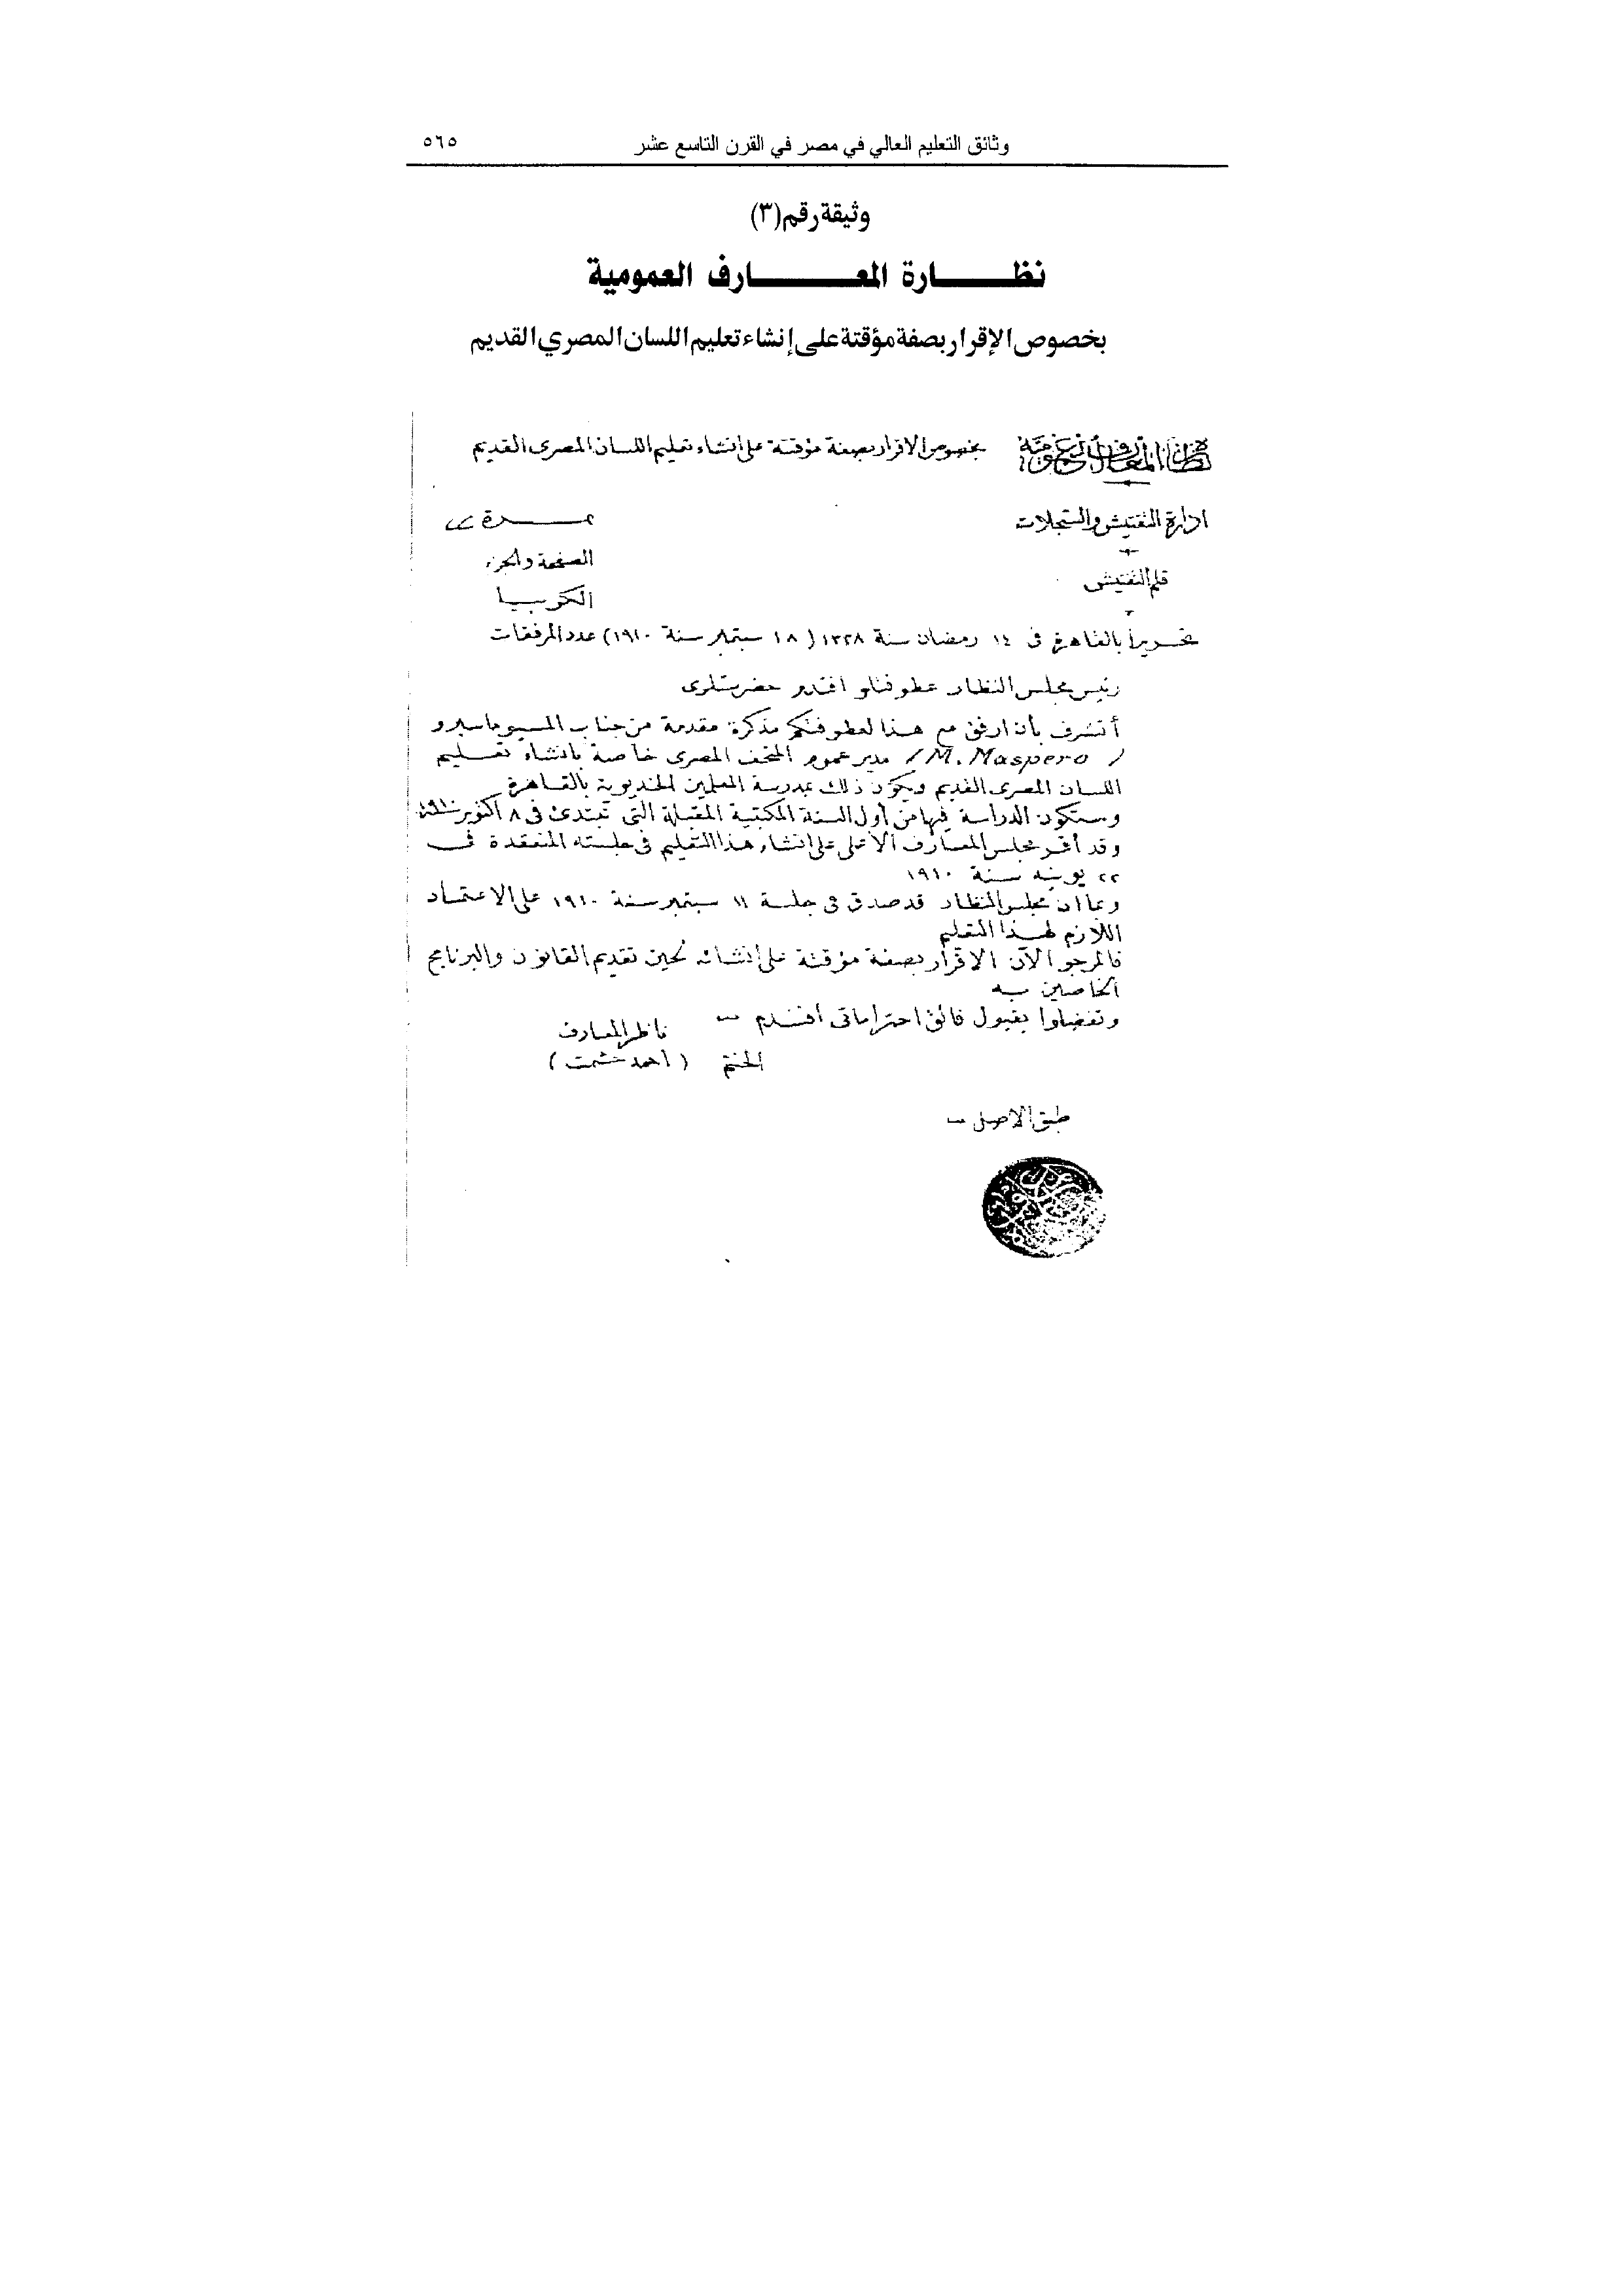 وثائق التعليم العالي في مصر في القرن التاسع عشر ٥٦٥
وثيقة رقم (٣)
نظارة المعارف العمومية
بخصوص الإقرار بصفة مؤقتة على إنشاء تعليم اللسان المصري القديم
نظارة المعارف العمومية بخصوص الاقرار بصفة مؤقتة على انشاء تعليم اللسان المصرى القديم
ادارة التفتيش والسجلات نمـــرة
الصفحة والجزء
قلم التفتيش
الكوبيا
تحريرا بالقاهرة فى ١٤ رمضان سنة ١٣٢٨ (١٨ سبتمبر سنة ١٩١٠) عدد المرفقات
رئيس مجلس النظار عطوفتلو افندم حضرتلرى
أتشرف بأن ارفق مع هذا لعطوفتكم مذكرة مقدمة من جناب المسيو ماسبرو
/ M. Maspero / مدير عموم المتحف المصرى خاصة بانشاء تعليم
اللسان المصرى القديم ويكون ذلك بمدرسة المعلمين الخديوية بالقاهرة
وستكون الدراسة فيها من أول السنة المكتبية المقبلة التى تبتدئ فى ٨ اكتوبر سنة ١٩١٠
وقد أقر مجلس المعارف الأعلى على انشاء هذا التعليم فى جلسته المنعقدة فى
٢٢ يونيه سنة ١٩١٠
وبما ان مجلس النظار قد صدق فى جلسة ١١ سبتمبر سنة ١٩١٠ على الاعتماد
اللازم لهذا التعليم
فالمرجو الآن الاقرار بصفة مؤقتة على انشائه لحين تقديم القانون والبرنامج
الخاصين به
وتفضلوا بقبول فائق احتراماتى أفندم
ناظر المعارف
الختم (أحمد حشمت)
طبق الاصل